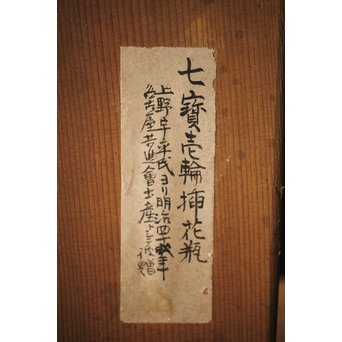 七寶壱輪挿花瓶
上野平氏ヨリ明治四十年
名古屋共進會土産トシテ被贈